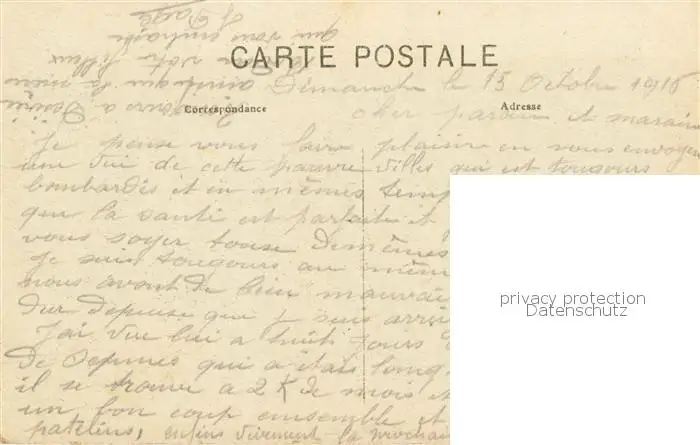 CARTE POSTALE
Correspondance
Adresse
Dimanche le 15 Octobre 1916
cher parain et maraine
Je pense vous faire plaisir en vous envoyer
une vue de cette pauvre villes qui est tougours
bombardés et en mêmes temp
que la santé est parfaite et
vous soyer tousse Demêmes
Je suis tougours au même
nous avont de bien mauvai
Dur depuse que je suis arriv
J'ai vue lui a huit jours
De qui a étais
il se trouve a 2 K de mois et
un bon coup ensemble et
patelins, enfins vivement la prochai
ainsi que la
votre filleux
qui vous embrasse
privacy protection
Datenschutz